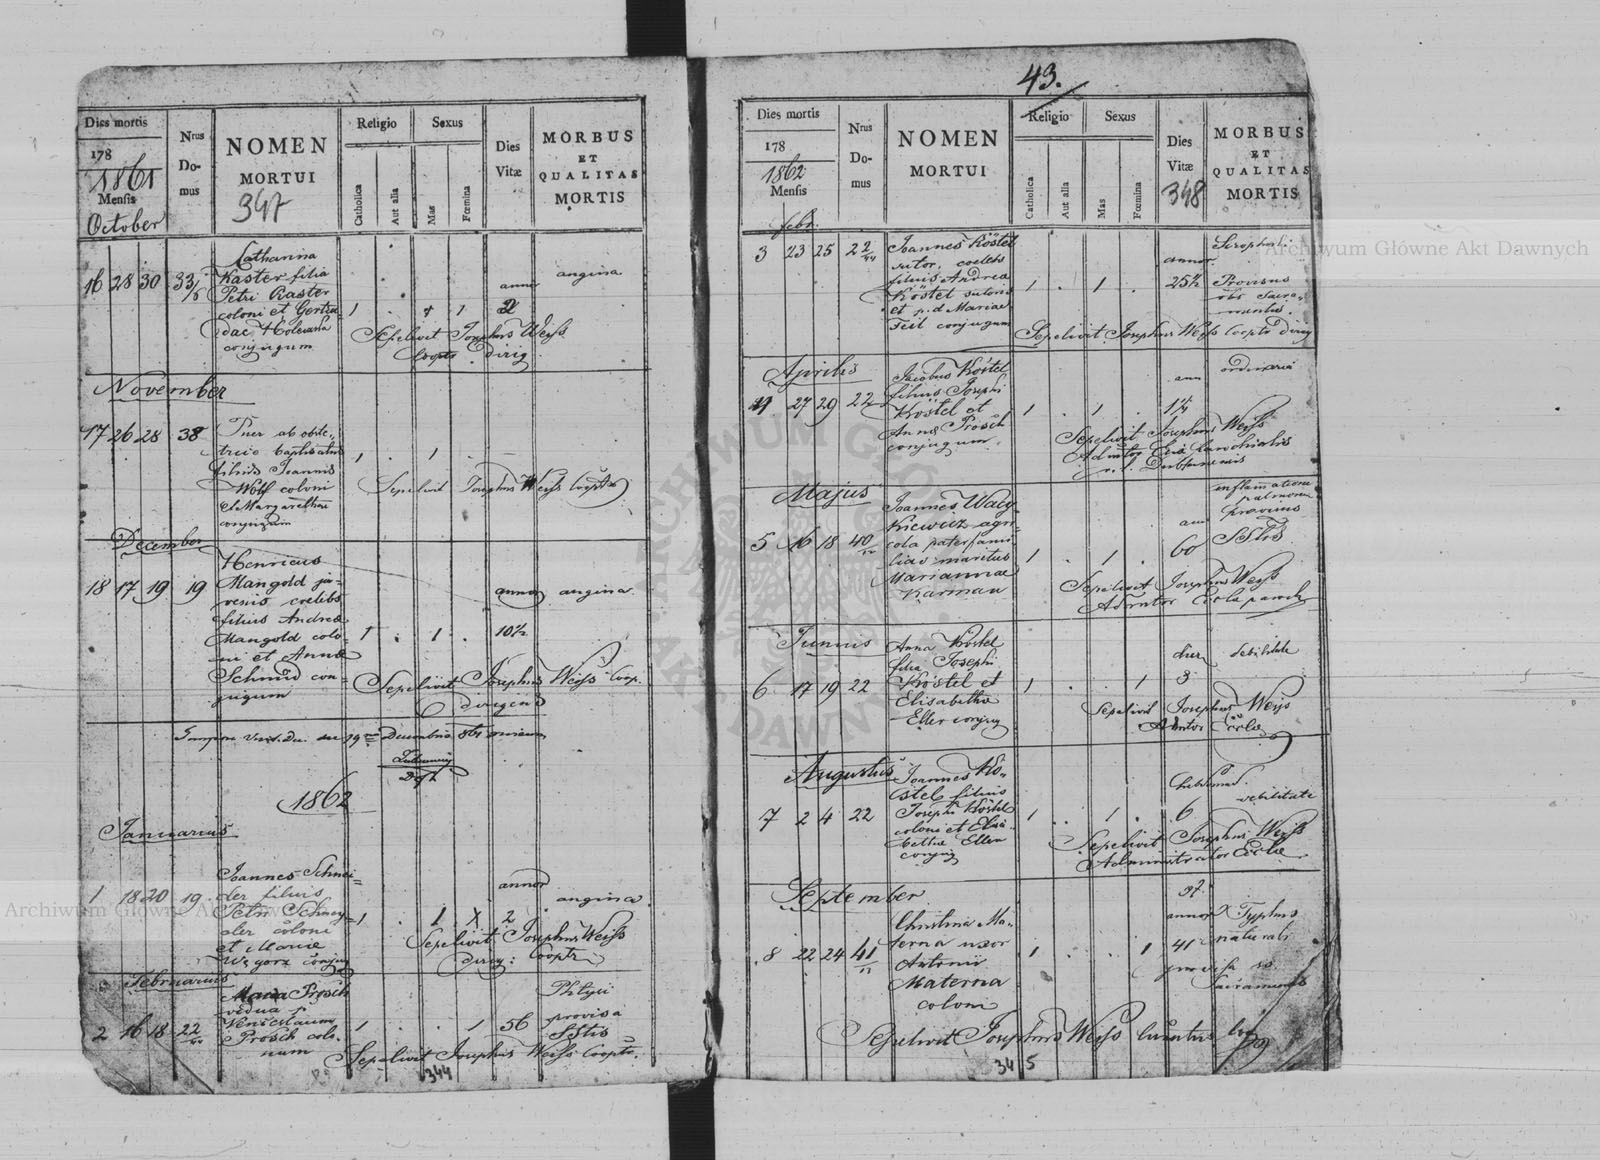 Dies mortis
178
1861
Mensis
October
Nrus
Do-
mus
NOMEN
MORTUI
347
Religio
Catholica
Aut alia
Sexus
Mas
Fœmina
Dies
Vitæ
MORBUS
ET
QUALITAS
MORTIS
16 28 30 33/5
Catharina
Kaster filia
Petri Kaster
coloni et Gertru-
dae
conjugum
1 . . 1 2
angina
Sepelivit Josephus Weiss
Coopr dirig
November
17 26 28 38
Puer ab obste-
trice baptisatus
filius Joannis
Wolf coloni
et Margarethae
conjugum
1 . 1
Sepelivit Josephus Weiss Cooptr
December
18 17 19 19
Henricus
Mangold ju-
venis coelebs
filius Andreae
Mangold colo-
ni et Annae
Schmid con-
jugum
1 . 1 .
annor
10½
angina
Sepelivit Josephus Weiss Coop.
dirigens
1862
Januarius
1 18 20 19
Joannes Schnei-
der filius
Petri Schney-
der coloni
et Mariae
conjug
1 . 1 X
annor
2
angina
Sepelivit Josephus Weiss
dirig: Cooptr
Februarius
2 16 18 22
Maria Prosch
vidua p.
Prosch colo-
num
1 . . 1 56
provisa
SStis
Sepelivit Josephus Weiss Cooptr.
344
43.
Dies mortis
178
1862
Mensis
febr.
Nrus
Do-
mus
NOMEN
MORTUI
Religio
Catholica
Aut alia
Sexus
Mas
Fœmina
Dies
Vitæ
348
MORBUS
ET
QUALITAS
MORTIS
3 23 25 22
Joannes Köstel
sutor, coelebs
filius Andreae
Köstel sutoris
et p.d Mariae
Feit conjugum
1 . 1 .
annor
25½
Provisus
Sacra-
mentis.
Sepelivit Josephus Weiss Cooptr dirig
Aprilis
4 27 29 22
Jacobus Köstel
filius Josephi
Köstel et
Annae Prosch
conjugum.
1 . 1 .
ann
ordinaria
Sepelivit Josephus Weiss
Admtor Eccl. Parochialis
Majus
5 16 18 40
Joannes Wacy-
kiewicz agri-
cola paterfami-
lias maritus
Mariannae
Karman
1 . 1 .
ann
60
inflamatione
pulmonum
provisus
SStis
Sepelivit Josephus Weiss
Admtor Eccla paroch
Junius
6 17 19 22
Anna Köstel
filia Josephi
Köstel et
Elisabethae
Eller conjug
1 . . 1
dier
3
debilitate
Sepelivit Josephus Weiss
Admtor Eccle
Augustus
7 2 4 22
Joannes Kö-
stel filius
Josephi Köstel
coloni et Elisa-
bethae Eller
conjug
1 . 1 .
hebdomad
6
debilitate
Sepelivit Josephus Weiss
Administrator Eccle
September
8 22 24 41
Christina Ma-
terna uxor
Antonii
Materna
coloni
1 . . 1
annor
41
Typhus
naturali
provisa ss.
Sacramentis
Sepelivit Josephus Weiss
345
Archiwum Główne Akt Dawnych
Archiwum Główne Akt Dawnych
ARCHIWUM GŁÓWNE AKT DAWNYCH